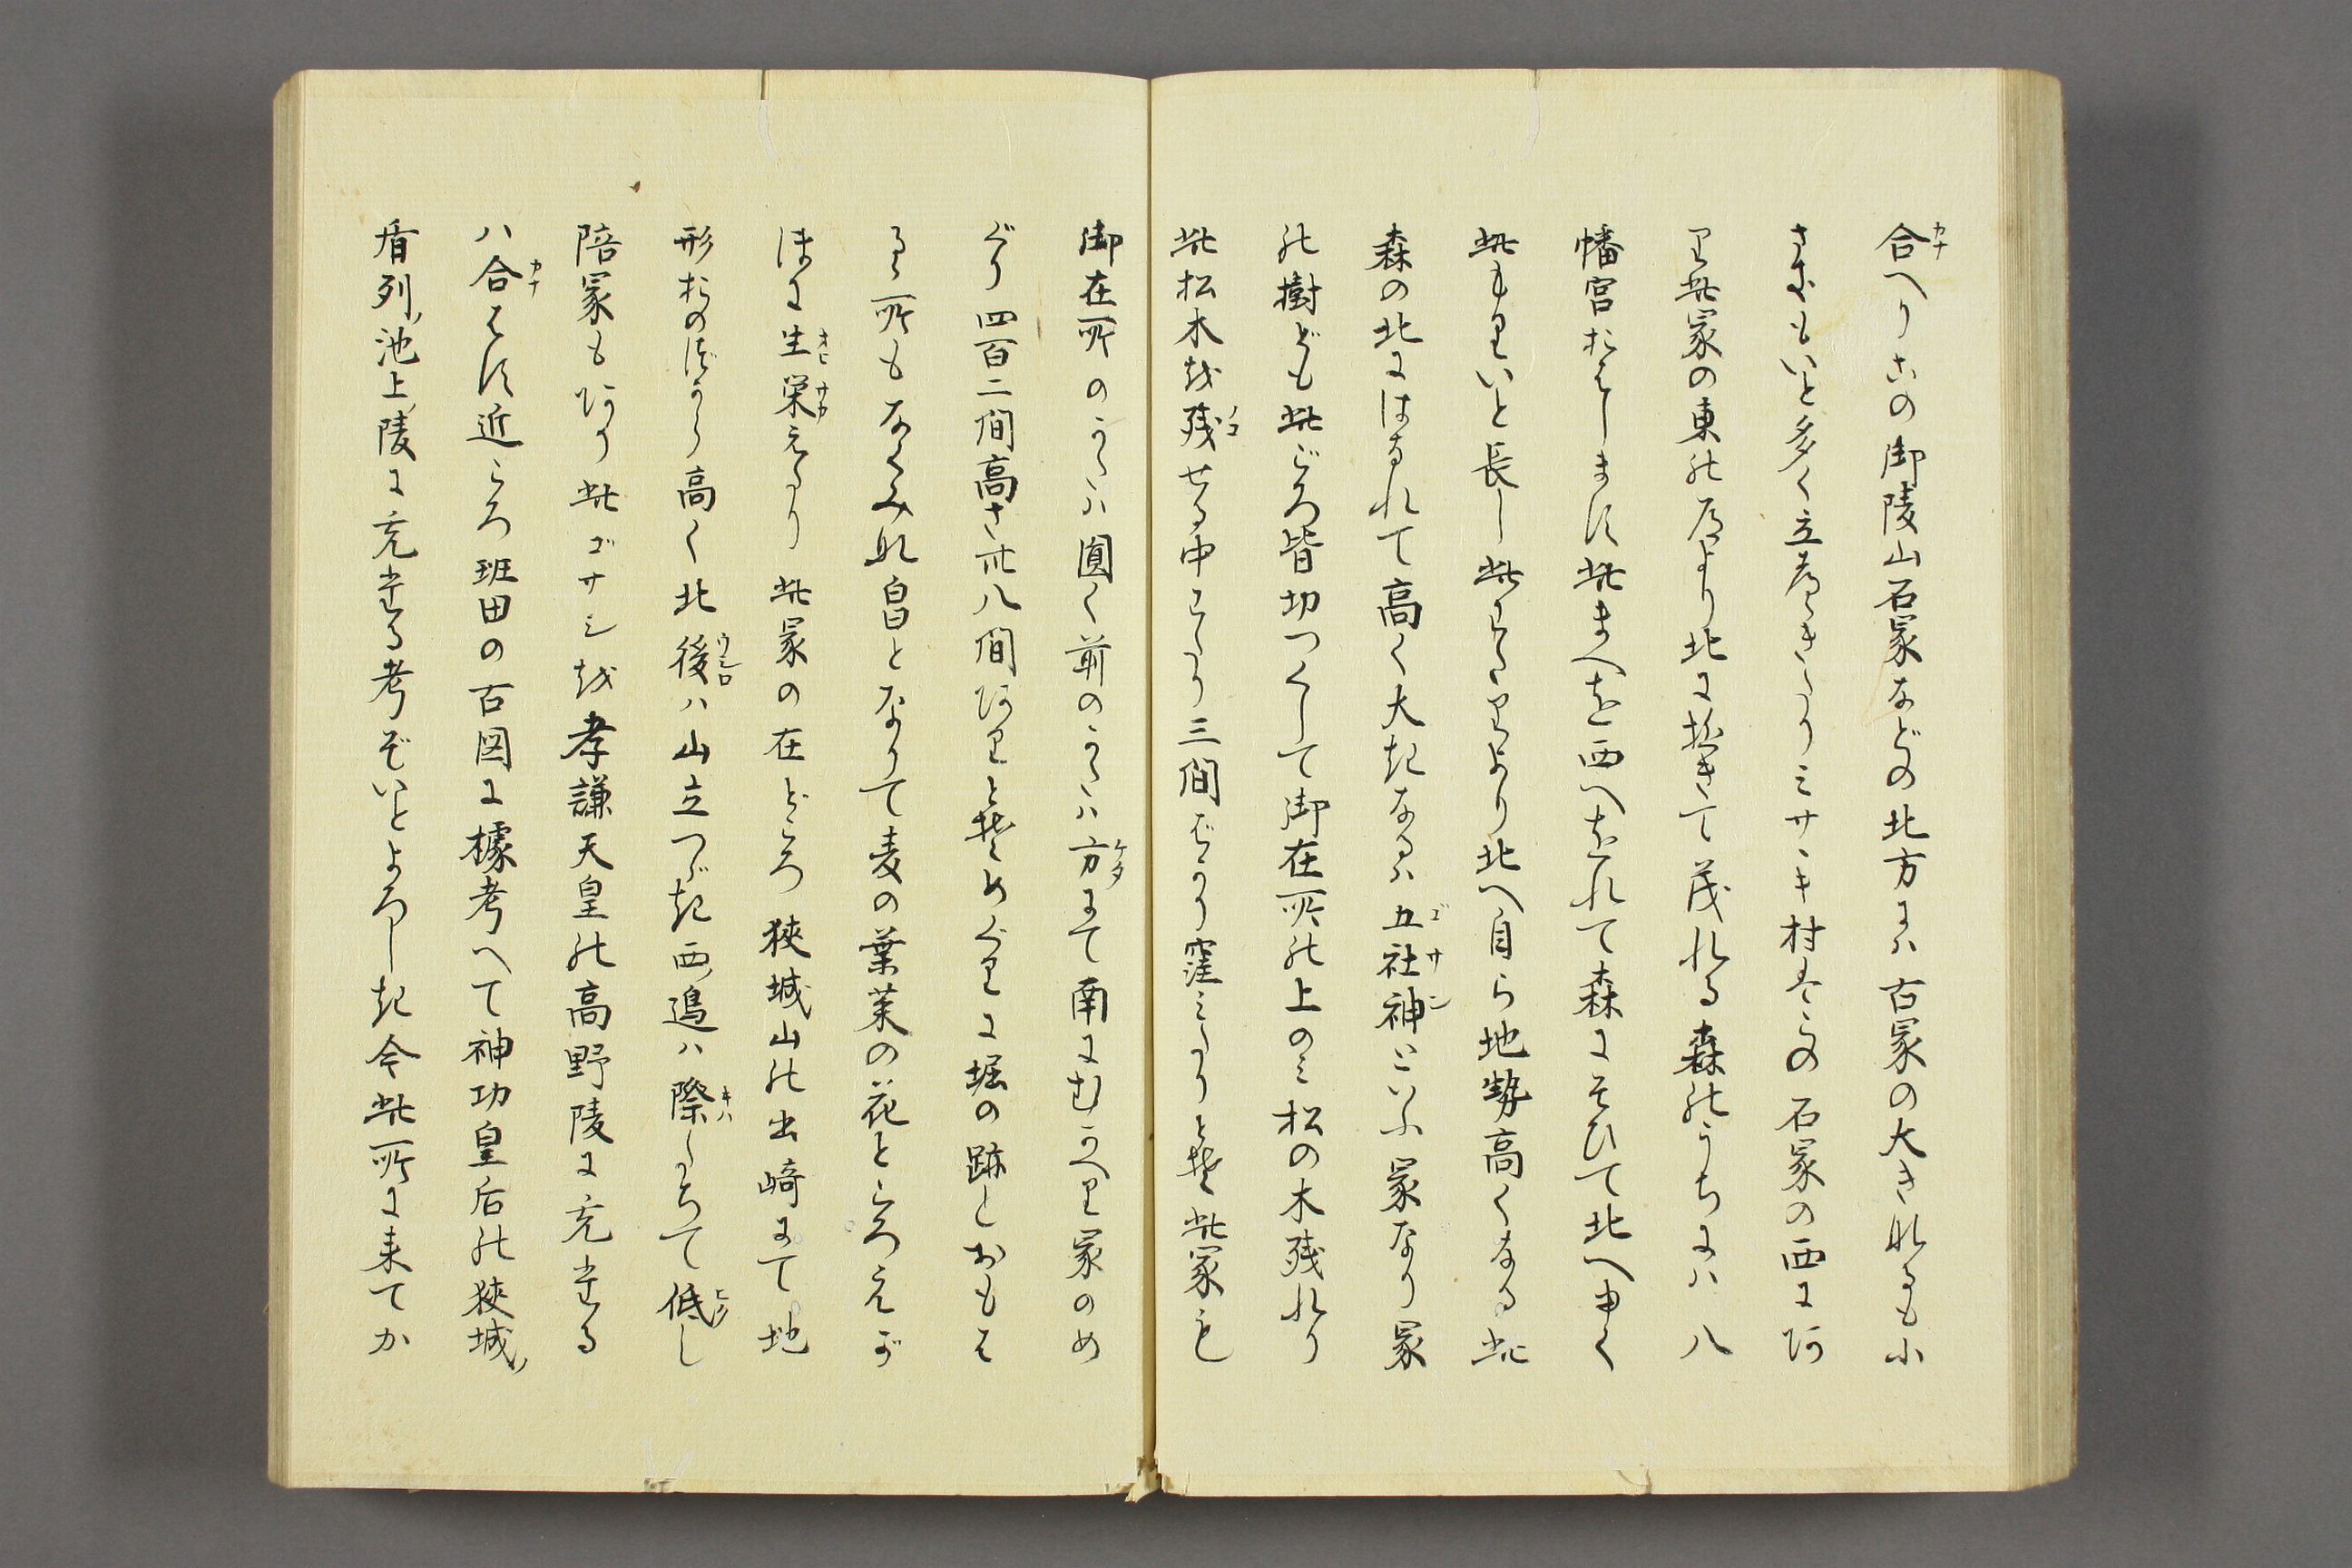 合へりこの御陵山石冢などの北方には古冢の大きなるも小
さきもいと多く立つゞきたりミサヽキ村はこの石冢の西にあ
り此冢の東の尾より北に引つゞきて茂れる森のうちには八
幡宮おはします此まへを西へをれて森にそひて北へ由く
此もりいと長し此わたりより北へ自ら地勢高くなる此
森の北にはなれて高く大きなるは五社神といふ冢なり冢
の樹ども此ごろ皆切つくして御在所の上のミ松の木残れり
此松木を残せる中わたり三間ばかり窪ミたりとぞ此冢も
御在所のかたハ圓く前のかたハ方にて南にむかへり冢のめ
ぐり四百二間高さ卅八間ありとぞめぐりに堀の跡とおもは
るゝ所もなくみな畠となりて麦の葉菜の花ところえが
ほに生栄えたり此冢の在どころ狭城山の出崎にて地
形おのづから高く北後ハ山立つゞき西邉ハ際たちて低し
陪冢もあり此ゴサシを孝謙天皇の高野陵に充たる
ハ合はず近ころ班田の古図に據考へて神功皇后の狭城
盾列池上陵に充たる考ぞいとよろしき今此所に来てか